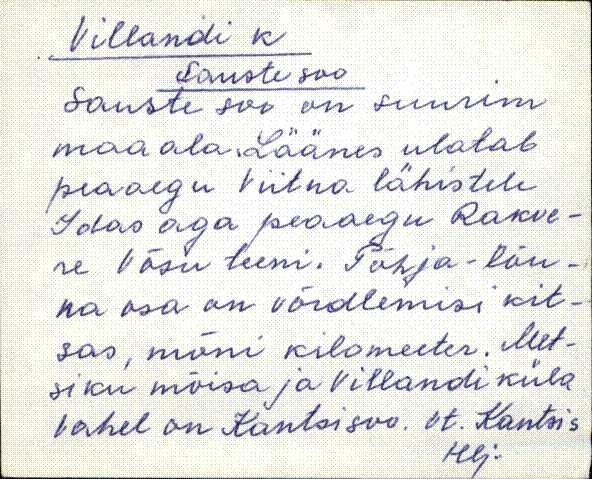 Villandi k
Sauste soo
Sauste soo on suurim
maaala. Läänes ulatab
peaaegu Viitna lähistele
Idas aga peaaegu Rakve-
re Võsu teeni. Põhja-lõu-
na osa on võrdlemisi kit-
sas, mõni kilomeeter. Met-
siku mõisa ja Villandi küla
vahel on Kantsisoo. Vt. Kantsis
Hlj.